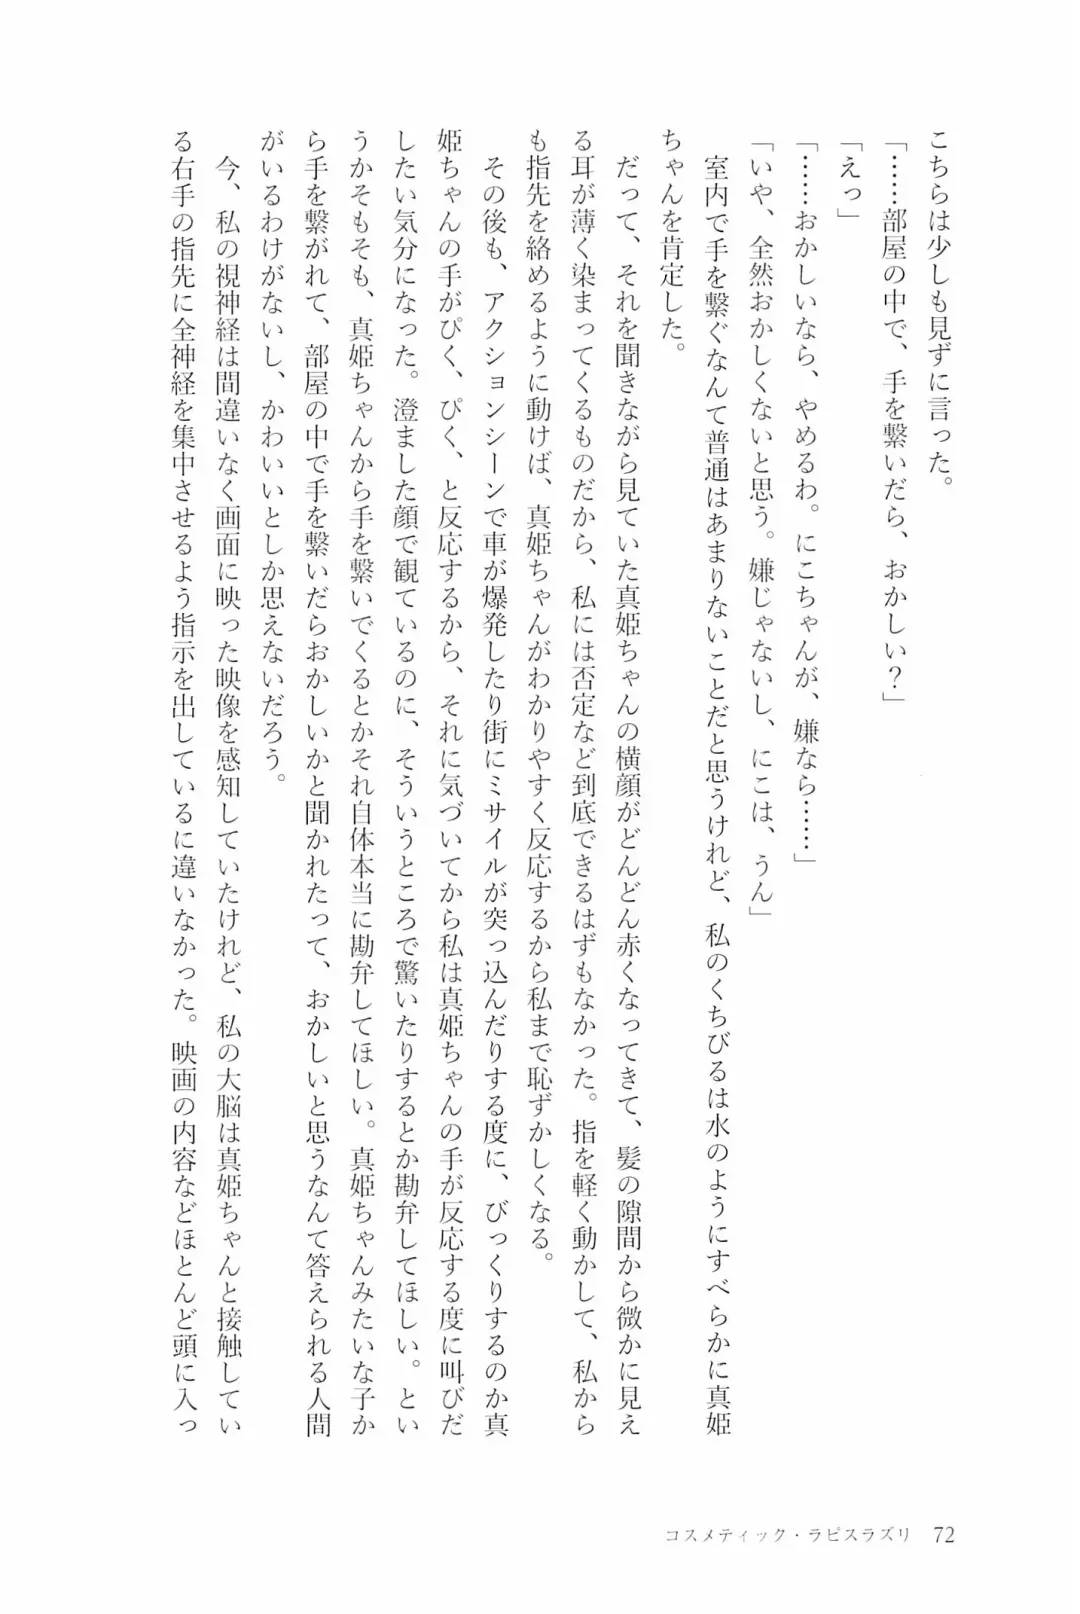 こちらは少しも見ずに言った。
「……部屋の中で、手を繋いだら、おかしい？」
「えっ」
「……おかしいなら、やめるわ。にこちゃんが、嫌なら……」
「いや、全然おかしくないと思う。嫌じゃないし、にこは、うん」
室内で手を繋ぐなんて普通はあまりないことだと思うけれど、私のくちびるは水のようにすべらかに真姫
ちゃんを肯定した。
だって、それを聞きながら見ていた真姫ちゃんの横顔がどんどん赤くなってきて、髪の隙間から微かに見え
る耳が薄く染まってくるものだから、私には否定など到底できるはずもなかった。指を軽く動かして、私から
も指先を絡めるように動けば、真姫ちゃんがわかりやすく反応するから私まで恥ずかしくなる。
その後も、アクションシーンで車が爆発したり街にミサイルが突っ込んだりする度に、びっくりするのか真
姫ちゃんの手がぴく、ぴく、と反応するから、それに気づいてから私は真姫ちゃんの手が反応する度に叫びだ
したい気分になった。澄ました顔で観ているのに、そういうところで驚いたりするとか勘弁してほしい。とい
うかそもそも、真姫ちゃんから手を繋いでくるとかそれ自体本当に勘弁してほしい。真姫ちゃんみたいな子か
ら手を繋がれて、部屋の中で手を繋いだらおかしいかと聞かれたって、おかしいと思うなんて答えられる人間
がいるわけがないし、かわいいとしか思えないだろう。
今、私の視神経は間違いなく画面に映った映像を感知していたけれど、私の大脳は真姫ちゃんと接触してい
る右手の指先に全神経を集中させるよう指示を出しているに違いなかった。映画の内容などほとんど頭に入っ
コスメティック・ラピスラズリ 72